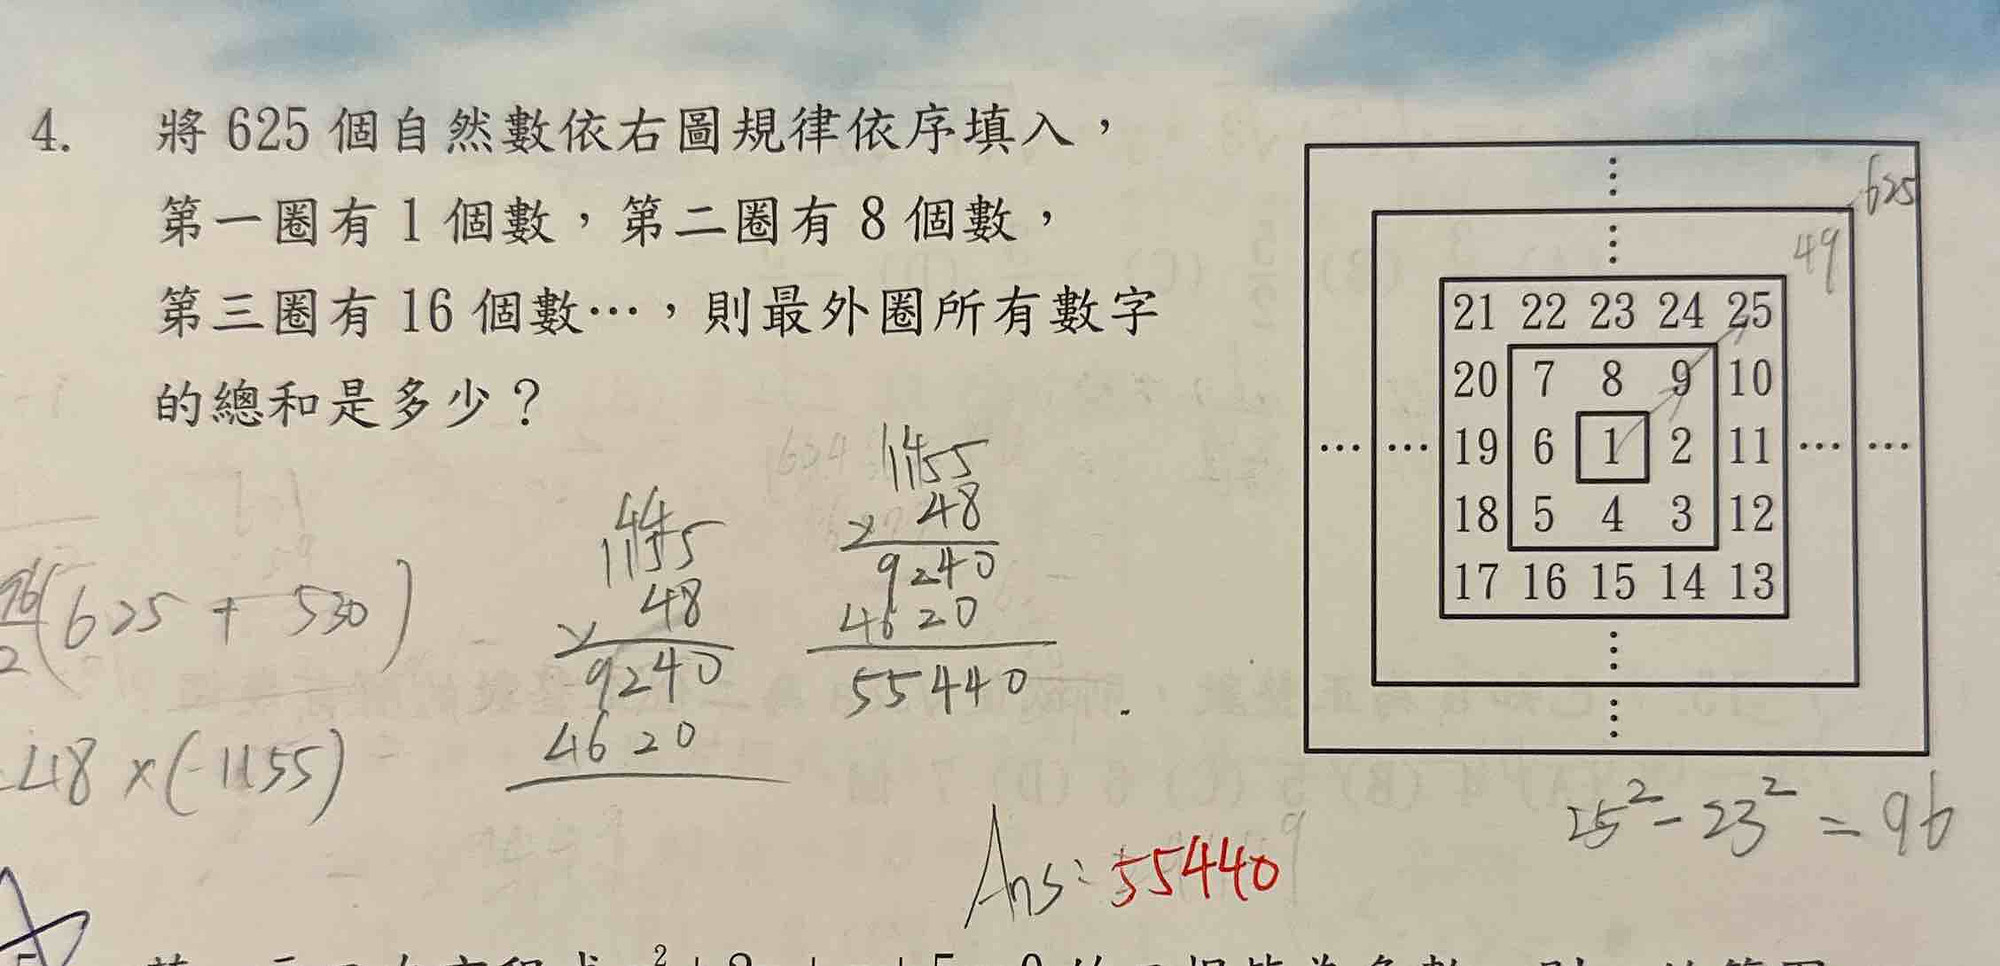 4. 將 625 個自然數依右圖規律依序填入，
第一圈有 1 個數，第二圈有 8 個數，
第三圈有 16 個數…，則最外圈所有數字
的總和是多少？
625
49
21 22 23 24 25
20 7 8 9 10
… … 19 6 1 2 11 … …
18 5 4 3 12
17 16 15 14 13
25² - 23² = 96
96/2 (625 + 530)
48 × (-1155)
1155
× 48
9240
4620
1155
× 48
9240
4620
55440
Ans: 55440